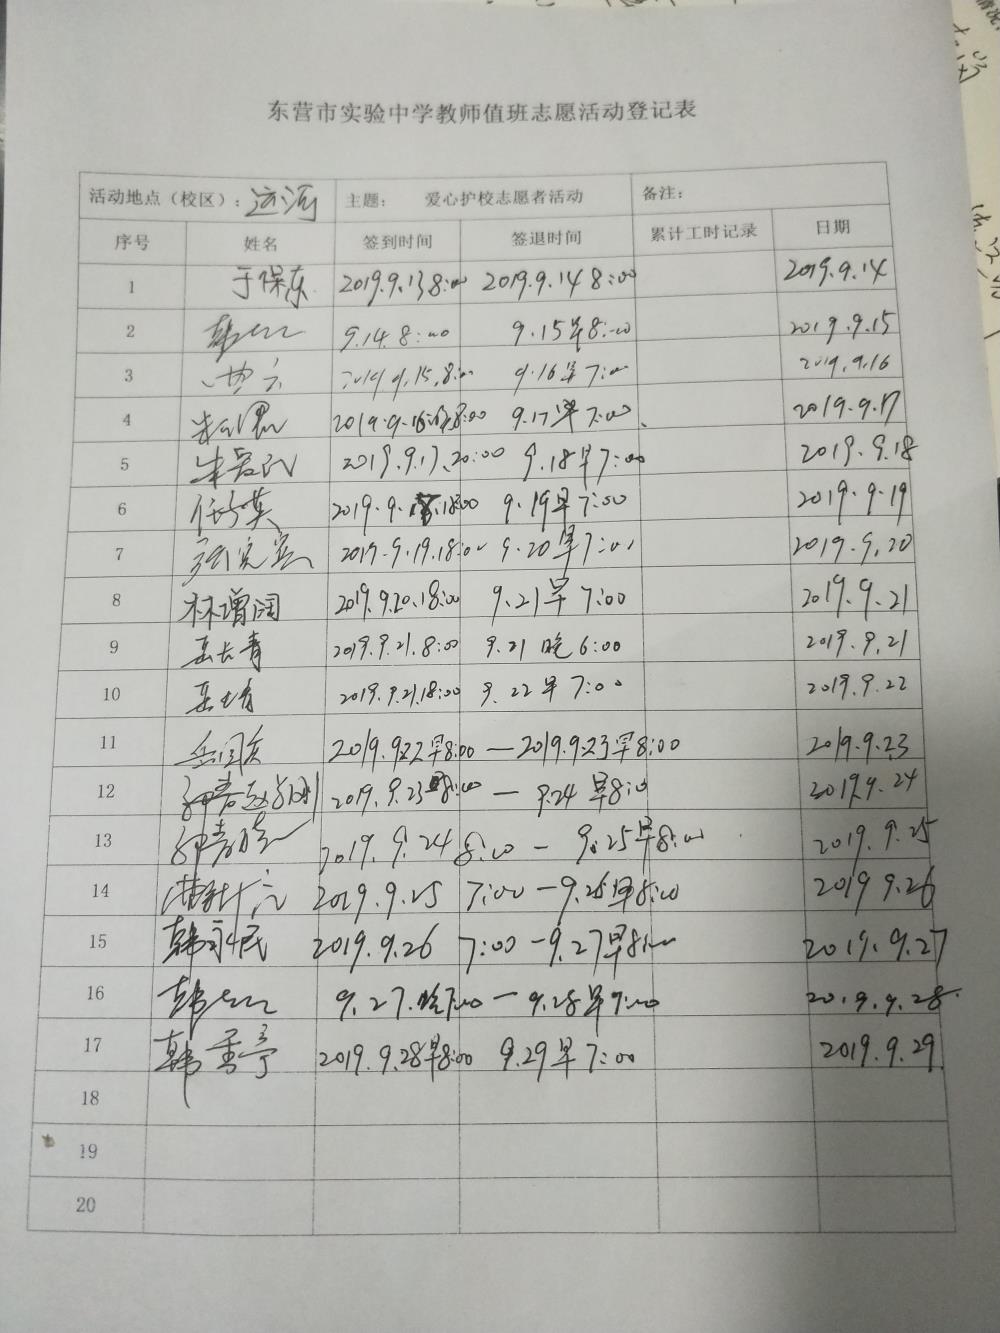 东营市实验中学教师值班志愿活动登记表
活动地点（校区）：运河 主题： 爱心护校志愿者活动 备注：
序号 姓名 签到时间 签退时间 累计工时记录 日期
1 于保东 2019.9.13 8:00 2019.9.14 8:00 2019.9.14
2 9.14.8:00 9.15早8:00 2019.9.15
3 2019.9.15.8:00 9.16早7:00 2019.9.16
4 9.17早7:00 2019.9.17
5 2019.9.17.20:00 9.18早7:00 2019.9.18
6 2019.9. 18:00 9.19早7:00 2019.9.19
7 2019.9.19.18:00 9.20早7:00 2019.9.20
8 林增阔 2019.9.20.18:00 9.21早7:00 2019.9.21
9 岳长青 2019.9.21.8:00 9.21晚6:00 2019.9.21
10 2019.9.21.18:00 9.22早7:00 2019.9.22
11 2019.9.22早8:00—2019.9.23早8:00 2019.9.23
12 2019.9.23 8:00—9.24早8:00 2019.9.24
13 2019.9.24 8:00—9.25早8:00 2019.9.25
14 2019.9.25 7:00—9.26早8:00 2019 9.26
15 韩永民 2019.9.26 7:00—9.27早8:00 2019.9.27
16 9.27.晚7:00—9.28早7:00 2019.9.28.
17 韩香亭 2019.9.28早8:00 9.29早7:00 2019.9.29
18
19
20